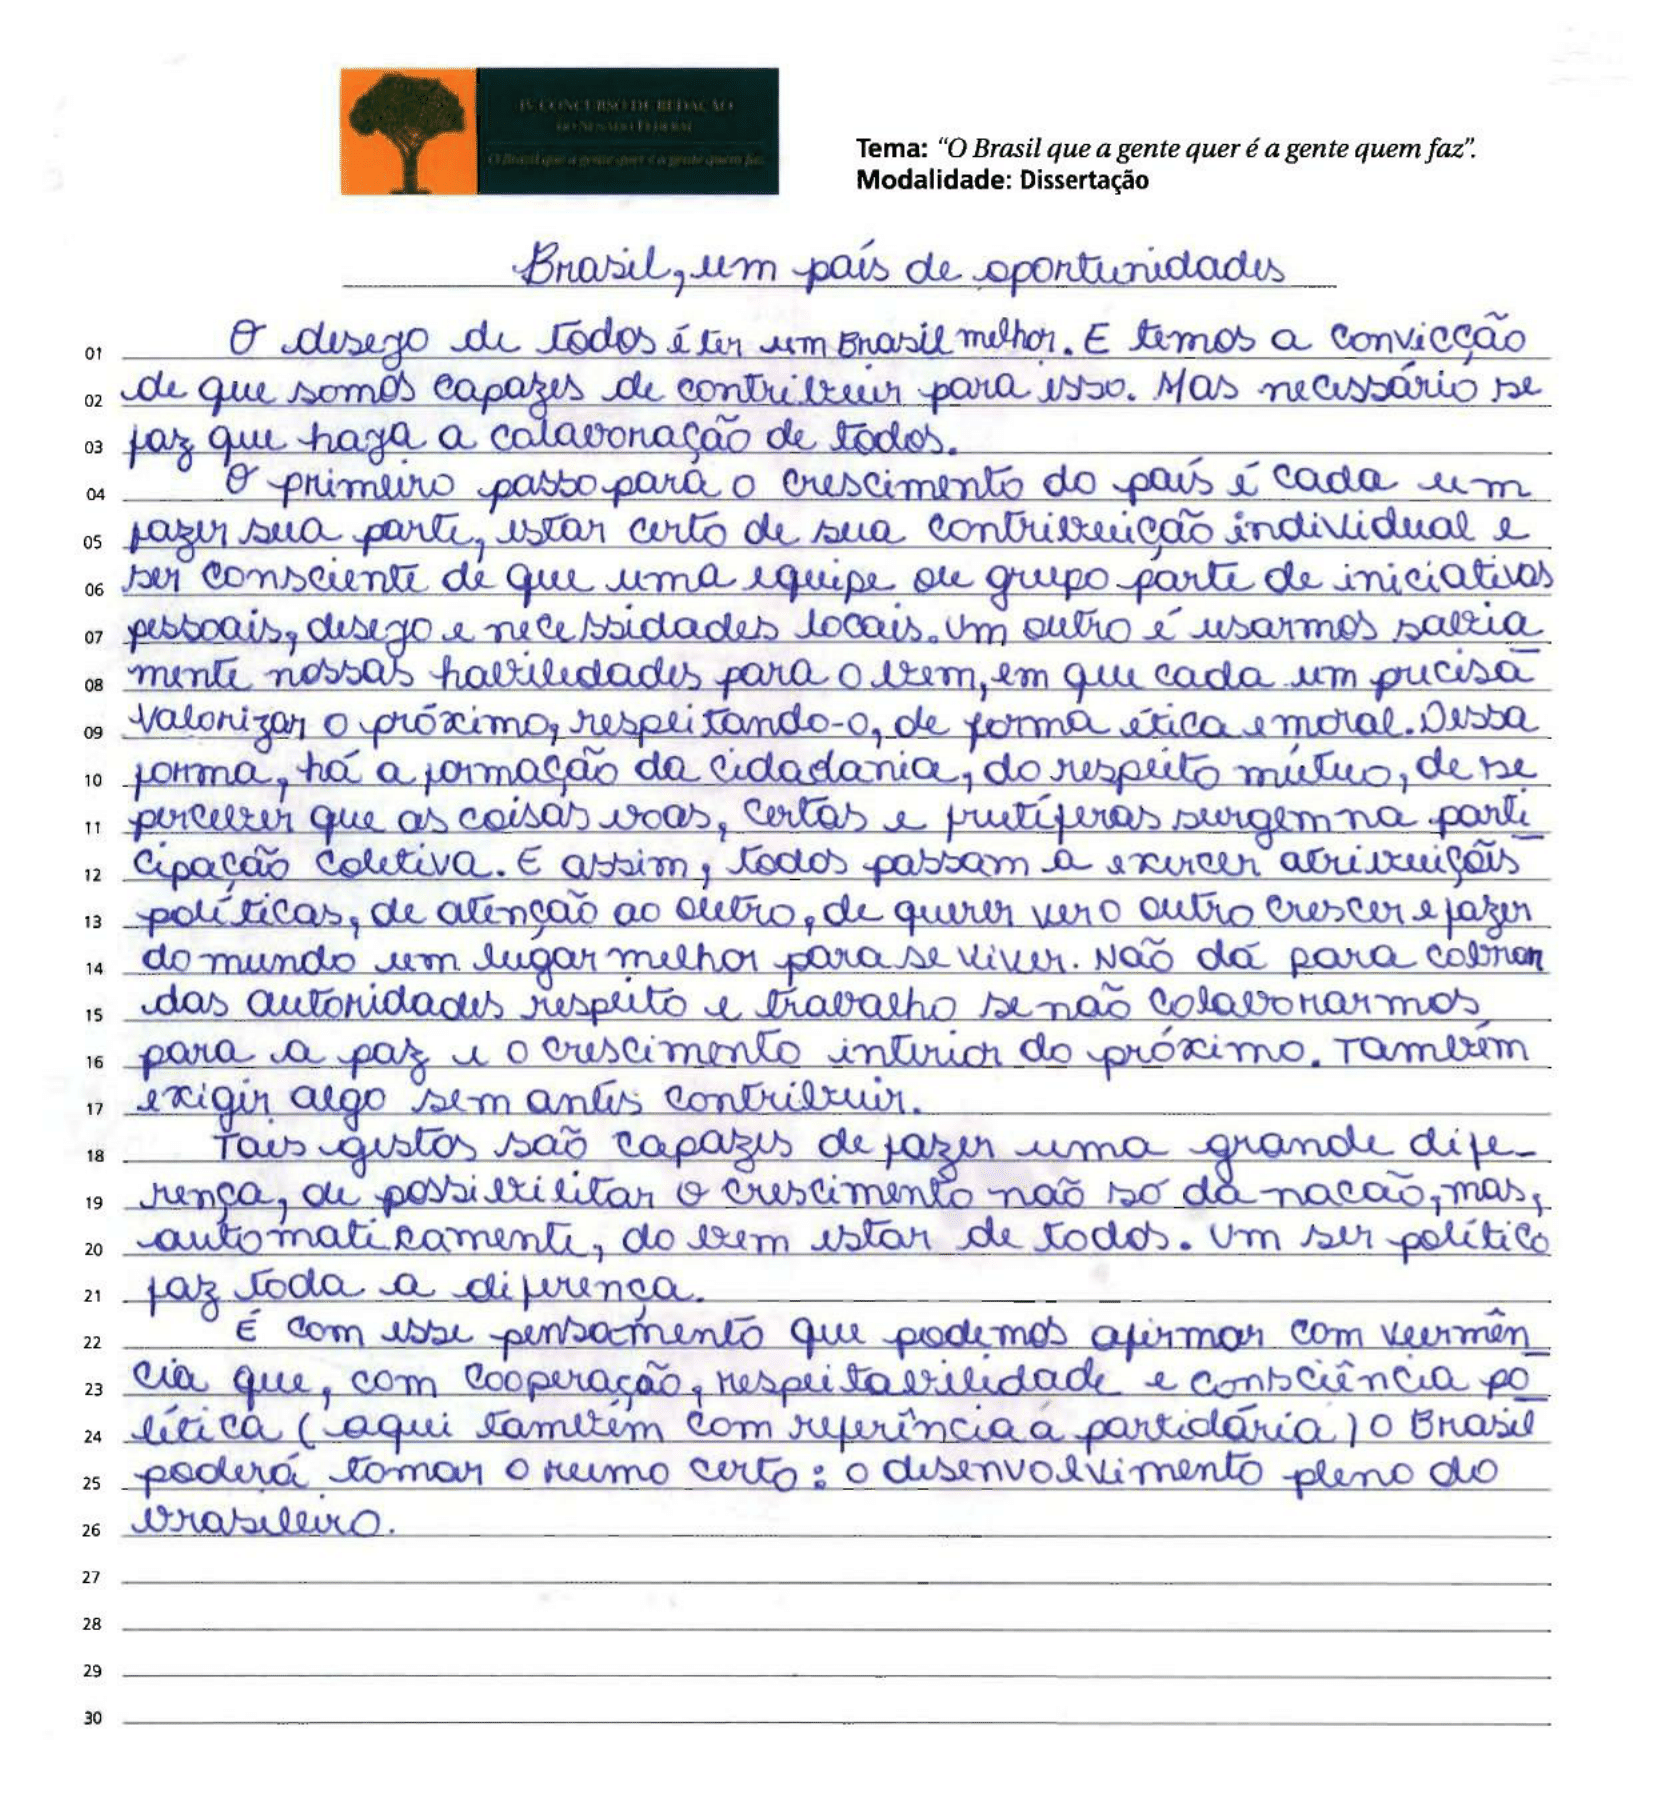 IV CONCURSO DE REDAÇÃO
DO SENADO FEDERAL
O Brasil que a gente quer é a gente quem faz.
Tema: “O Brasil que a gente quer é a gente quem faz”.
Modalidade: Dissertação
Brasil, um país de oportunidades
01 O desejo de todos é ter um Brasil melhor. E temos a convicção
02 de que somos capazes de contribuir para isso. Mas necessário se
03 faz que haja a colaboração de todos.
04 O primeiro passo para o crescimento do país é cada um
05 fazer sua parte, estar certo de sua contribuição individual e
06 ser consciente de que uma equipe ou grupo parte de iniciativas
07 pessoais, desejo e necessidades locais. Um outro é usarmos sabia
08 mente nossas habilidades para o bem, em que cada um precisa
09 valorizar o próximo, respeitando-o, de forma ética e moral. Dessa
10 forma, há a formação da cidadania, do respeito mútuo, de se
11 perceber que as coisas boas, certas e frutíferas surgem na parti
12 cipação coletiva. E assim, todos passam a exercer atribuições
13 políticas, de atenção ao outro, de querer ver o outro crescer e fazer
14 do mundo um lugar melhor para se viver. Não dá para cobrar
15 das autoridades respeito e trabalho se não colaborarmos
16 para a paz e o crescimento interior do próximo. Também
17 exigir algo sem antes contribuir.
18 Tais gestos são capazes de fazer uma grande dife-
19 rença, de possibilitar o crescimento não só da nação, mas,
20 automaticamente, do bem estar de todos. Um ser político
21 faz toda a diferença.
22 É com esse pensamento que podemos afirmar com veemên
23 cia que, com cooperação, respeitabilidade e consciência po
24 lítica (aqui também com referência a partidária) o Brasil
25 poderá tomar o rumo certo: o desenvolvimento pleno do
26 brasileiro.
27
28
29
30